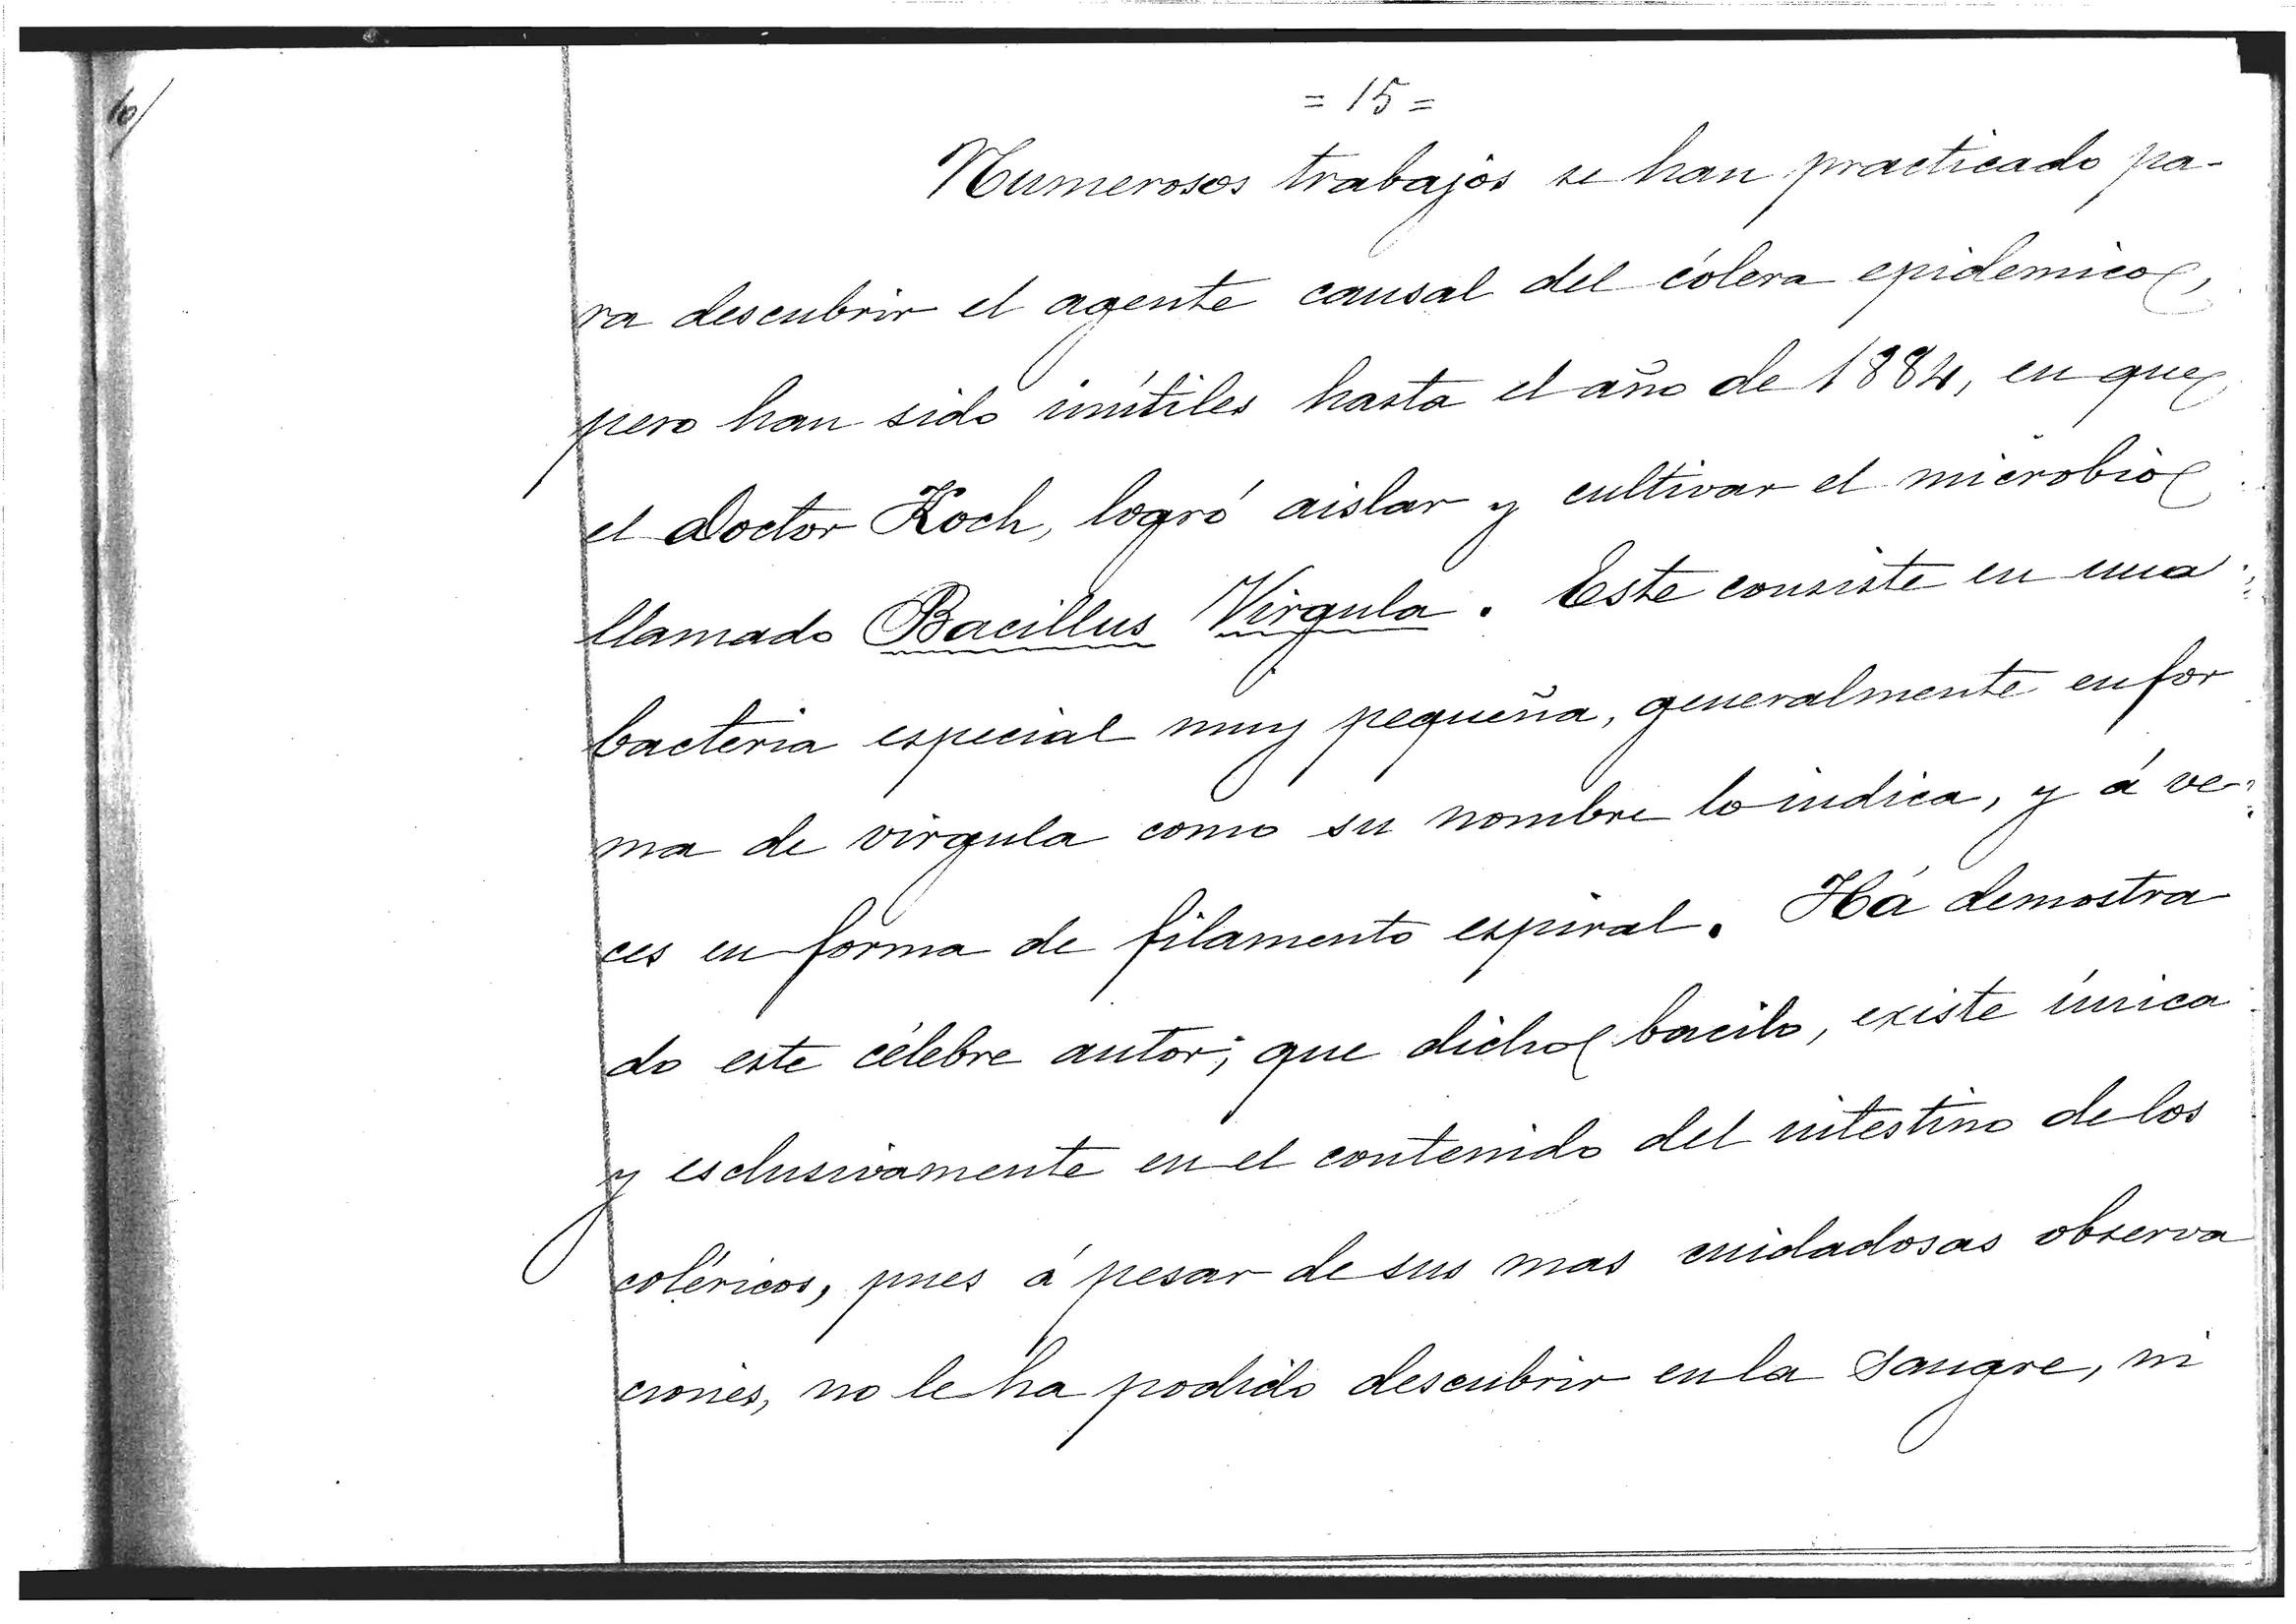 10/
= 15 =
Numerosos trabajos se han practicado pa-
ra descubrir el agente causal del cólera epidemico,
pero han sido inútiles hasta el año de 1884, en que
el Doctor Koch, logró aislar y cultivar el microbio
llamado Bacillus Virgula. Este consiste en una
bacteria especial muy pequeña, generalmente en for
ma de virgula como su nombre lo indica, y á ve-
ces en forma de filamento espiral. Há demostra
do este célebre autor; que dicho bacilo, existe única
y esclusivamente en el contenido del intestino de los
coléricos, pues á pesar de sus mas cuidadosas observa
ciones, no le ha podido descubrir en la sangre, ni